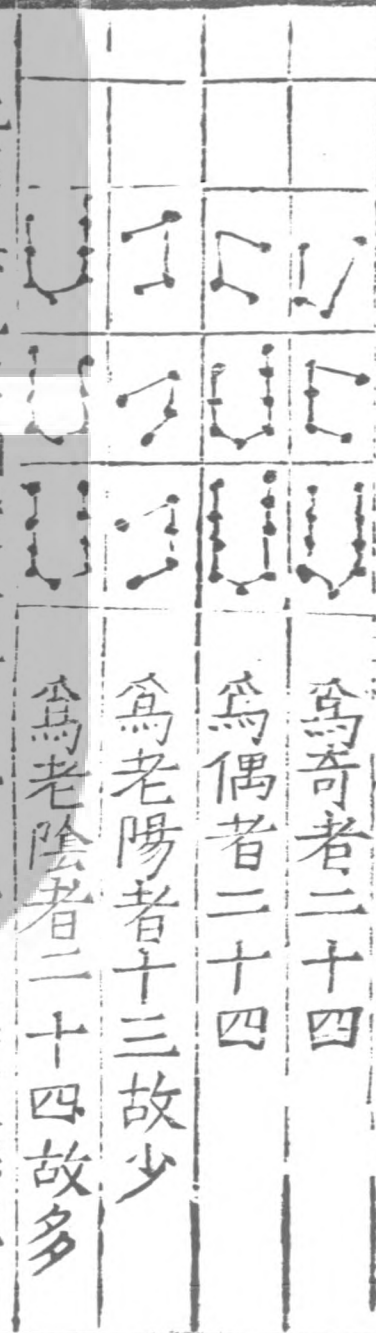 爲奇者二十四
爲偶者二十四
爲老陽者十三故少
爲老陰者二十四故多